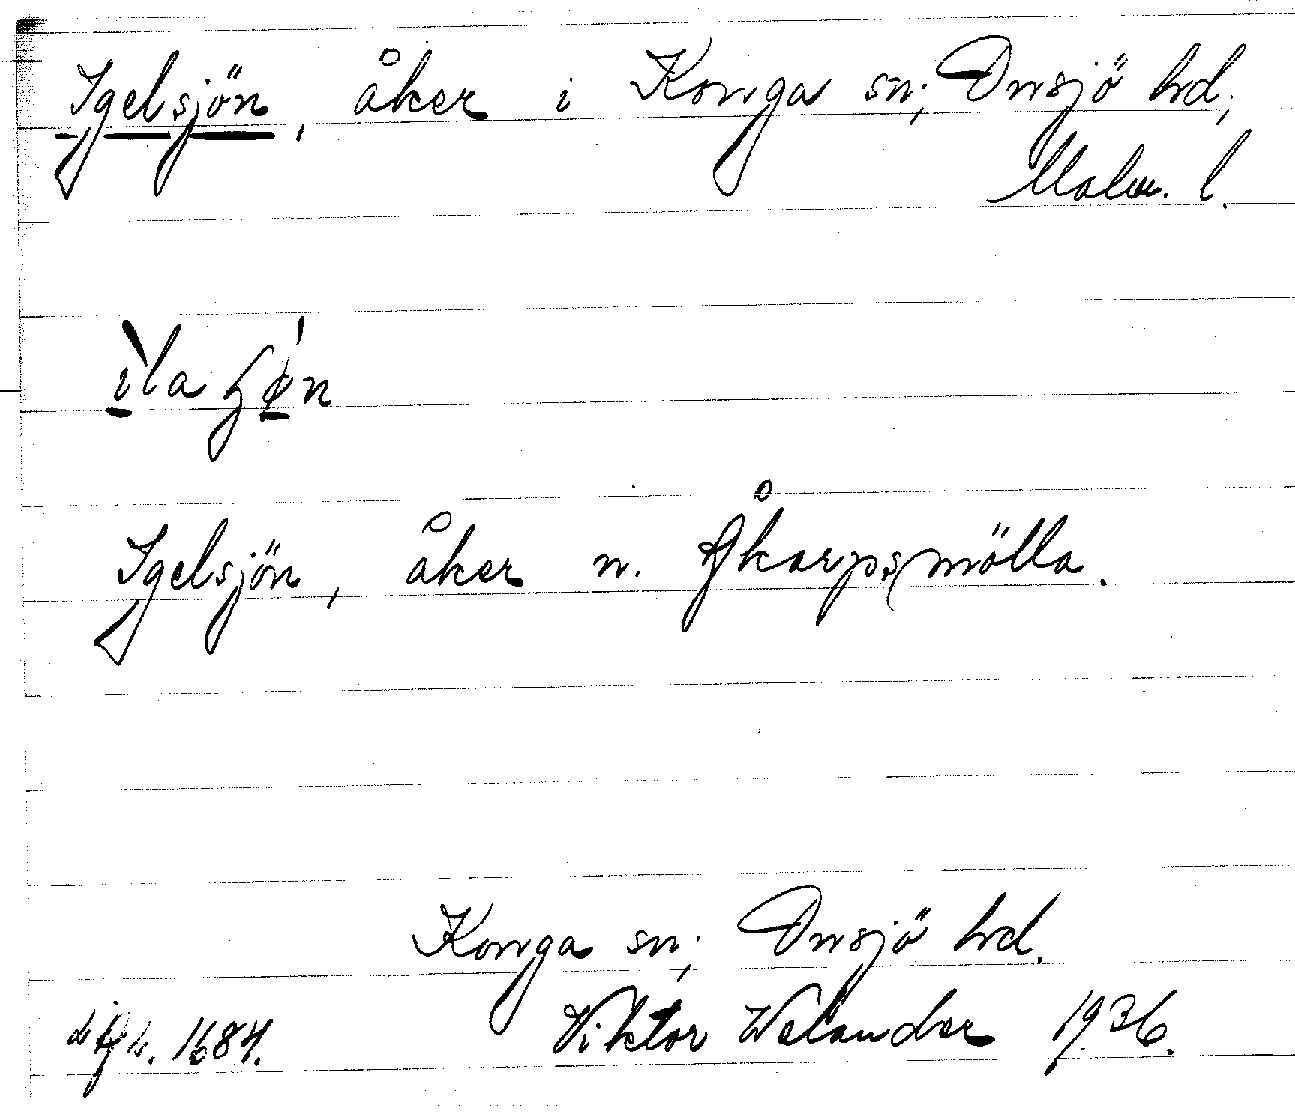 Igelsjön, åker i Konga sn; Onsjö hd;
Malm. l.
Igelsjön, åker n. Åkarpsmölla.
Konga sn; Onsjö hd.
1684. Viktor Welander 1936.